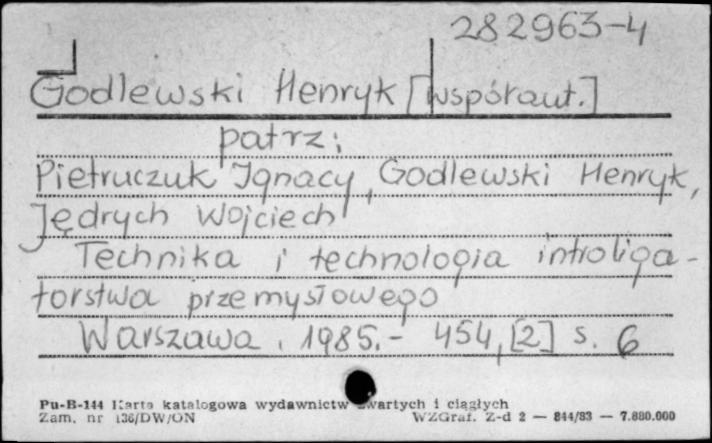 282963-4
Godlewski Henryk [współaut.]
patrz:
Pietruczuk Ignacy, Godlewski Henryk,
Jędrych Wojciech
Technika i technologia introliga-
torstwa przemysłowego
Warszawa, 1985.- 454, [2] s. 6
Pu-B-144 Karta katalogowa wydawnictw zwartych i ciągłych
Zam. nr 136/DW/ON WZGraf. Z-d 2 — 844/83 — 7.880.000